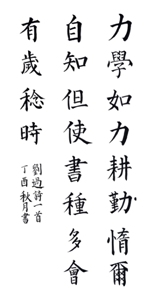 力學如力耕勤惰爾
自知但使書種多會
有歲稔時
劉過詩一首
丁酉秋月書